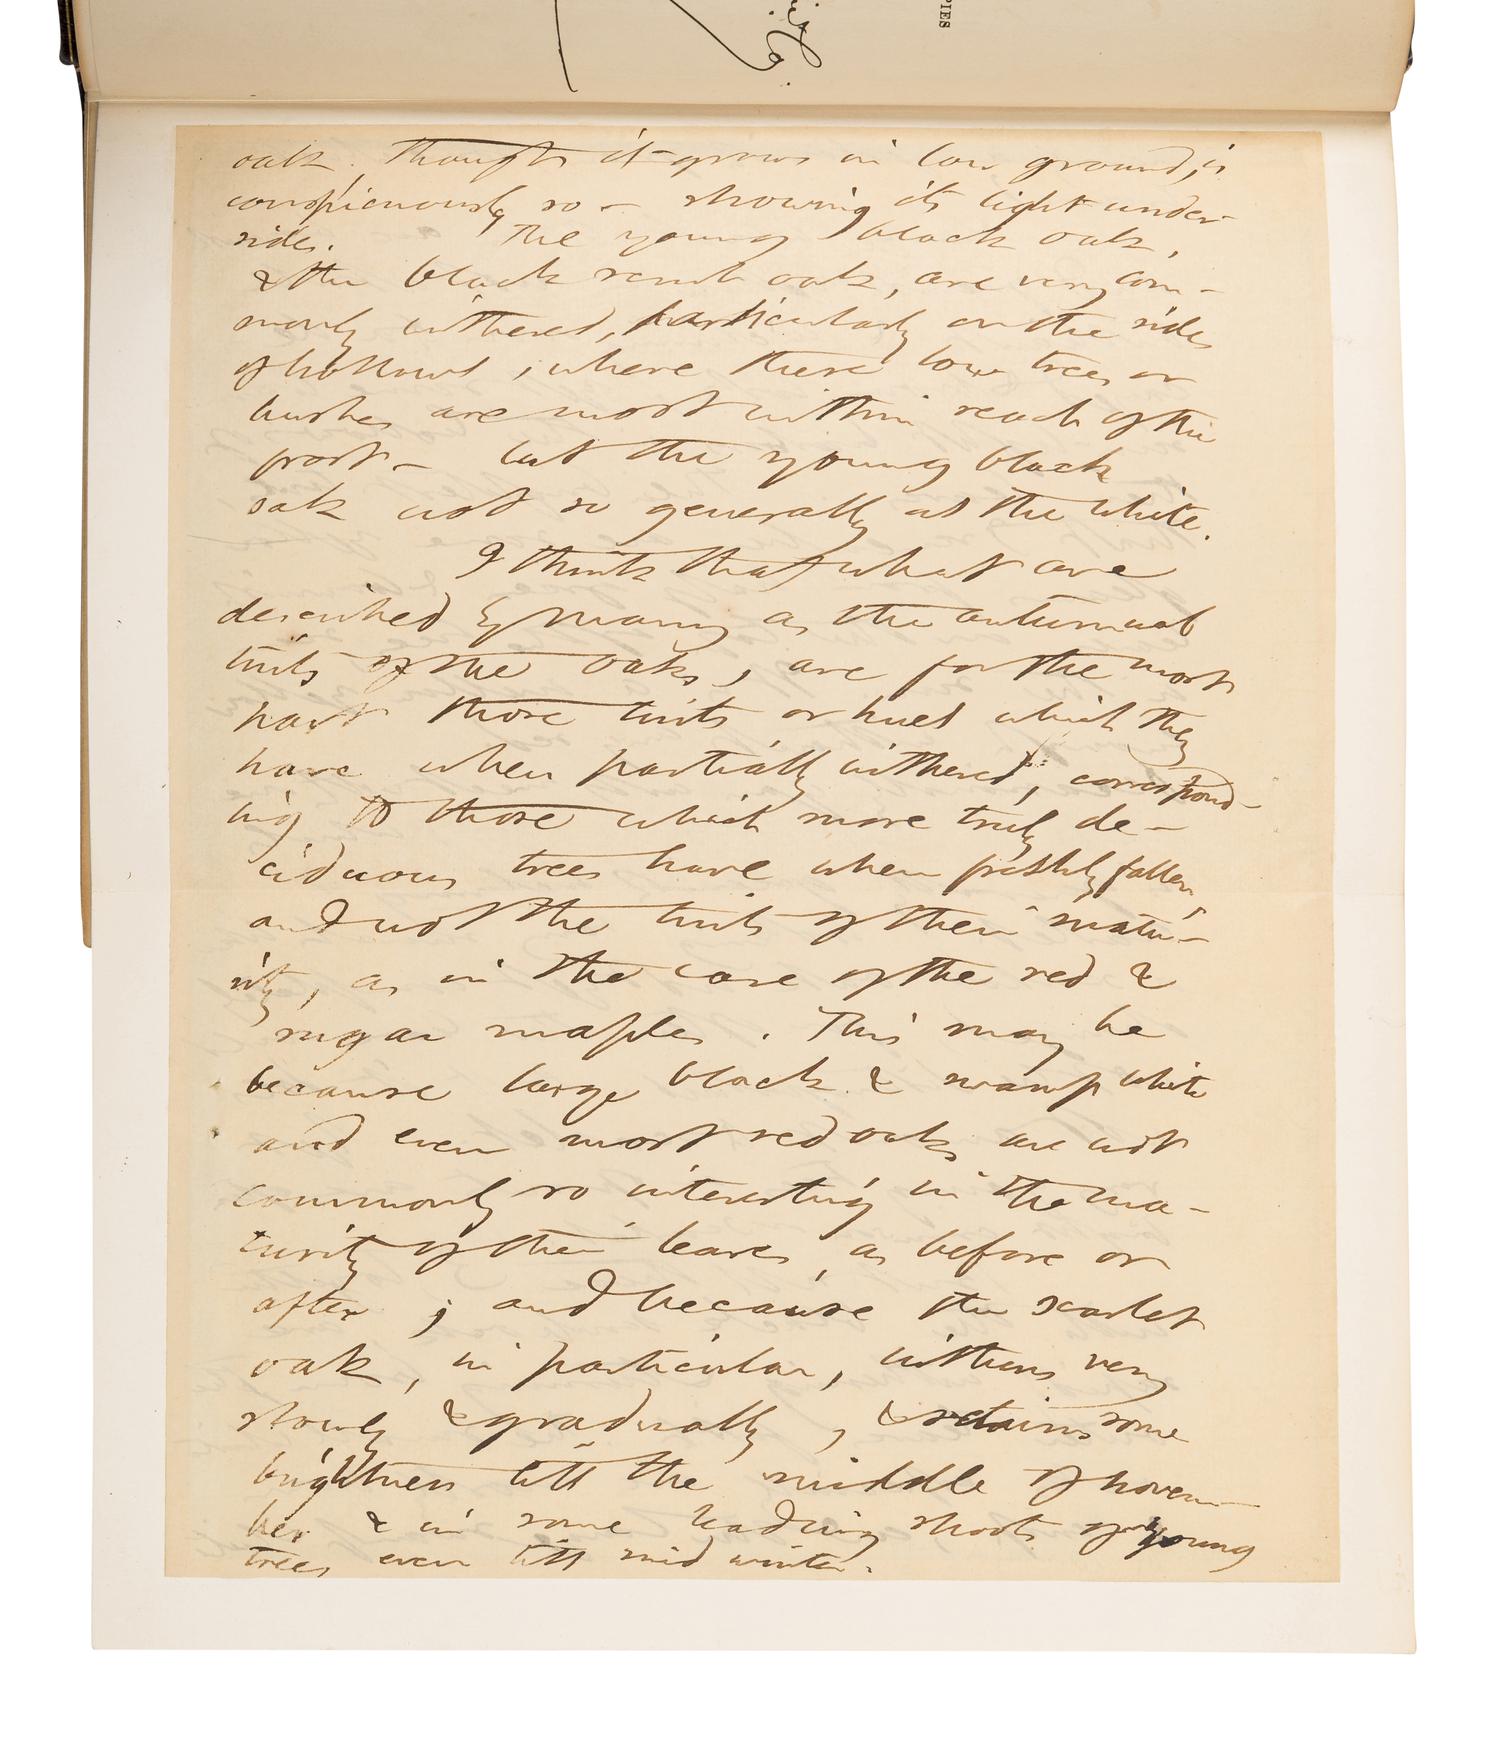 PIES
oak, though it grows in low ground, is
conspicuously so — showing its light under
sides. The young black oak,
& the black scrub oak, are very com-
monly withered, particularly on the sides
of hollows, where these low trees or
bushes are most within reach of the
frost — but the young black
oak not so generally as the white.
I think that what are
described by many as the autumnal
tints of the oaks, are for the most
part those tints or hues which they
have when partially withered, correspond-
ing to those which more truly de-
ciduous trees have when freshly fallen,
and not the tints of their matu-
rity, as in the case of the red &
sugar maples. This may be
because large black & swamp white
and even most red oaks are not
commonly so interesting in the ma-
turity of their leaves, as before or
after; and because the scarlet
oak, in particular, withers very
slowly & gradually, & retains some
brightness till the middle of novem-
ber & in some leading shoots of young
trees even till mid winter.